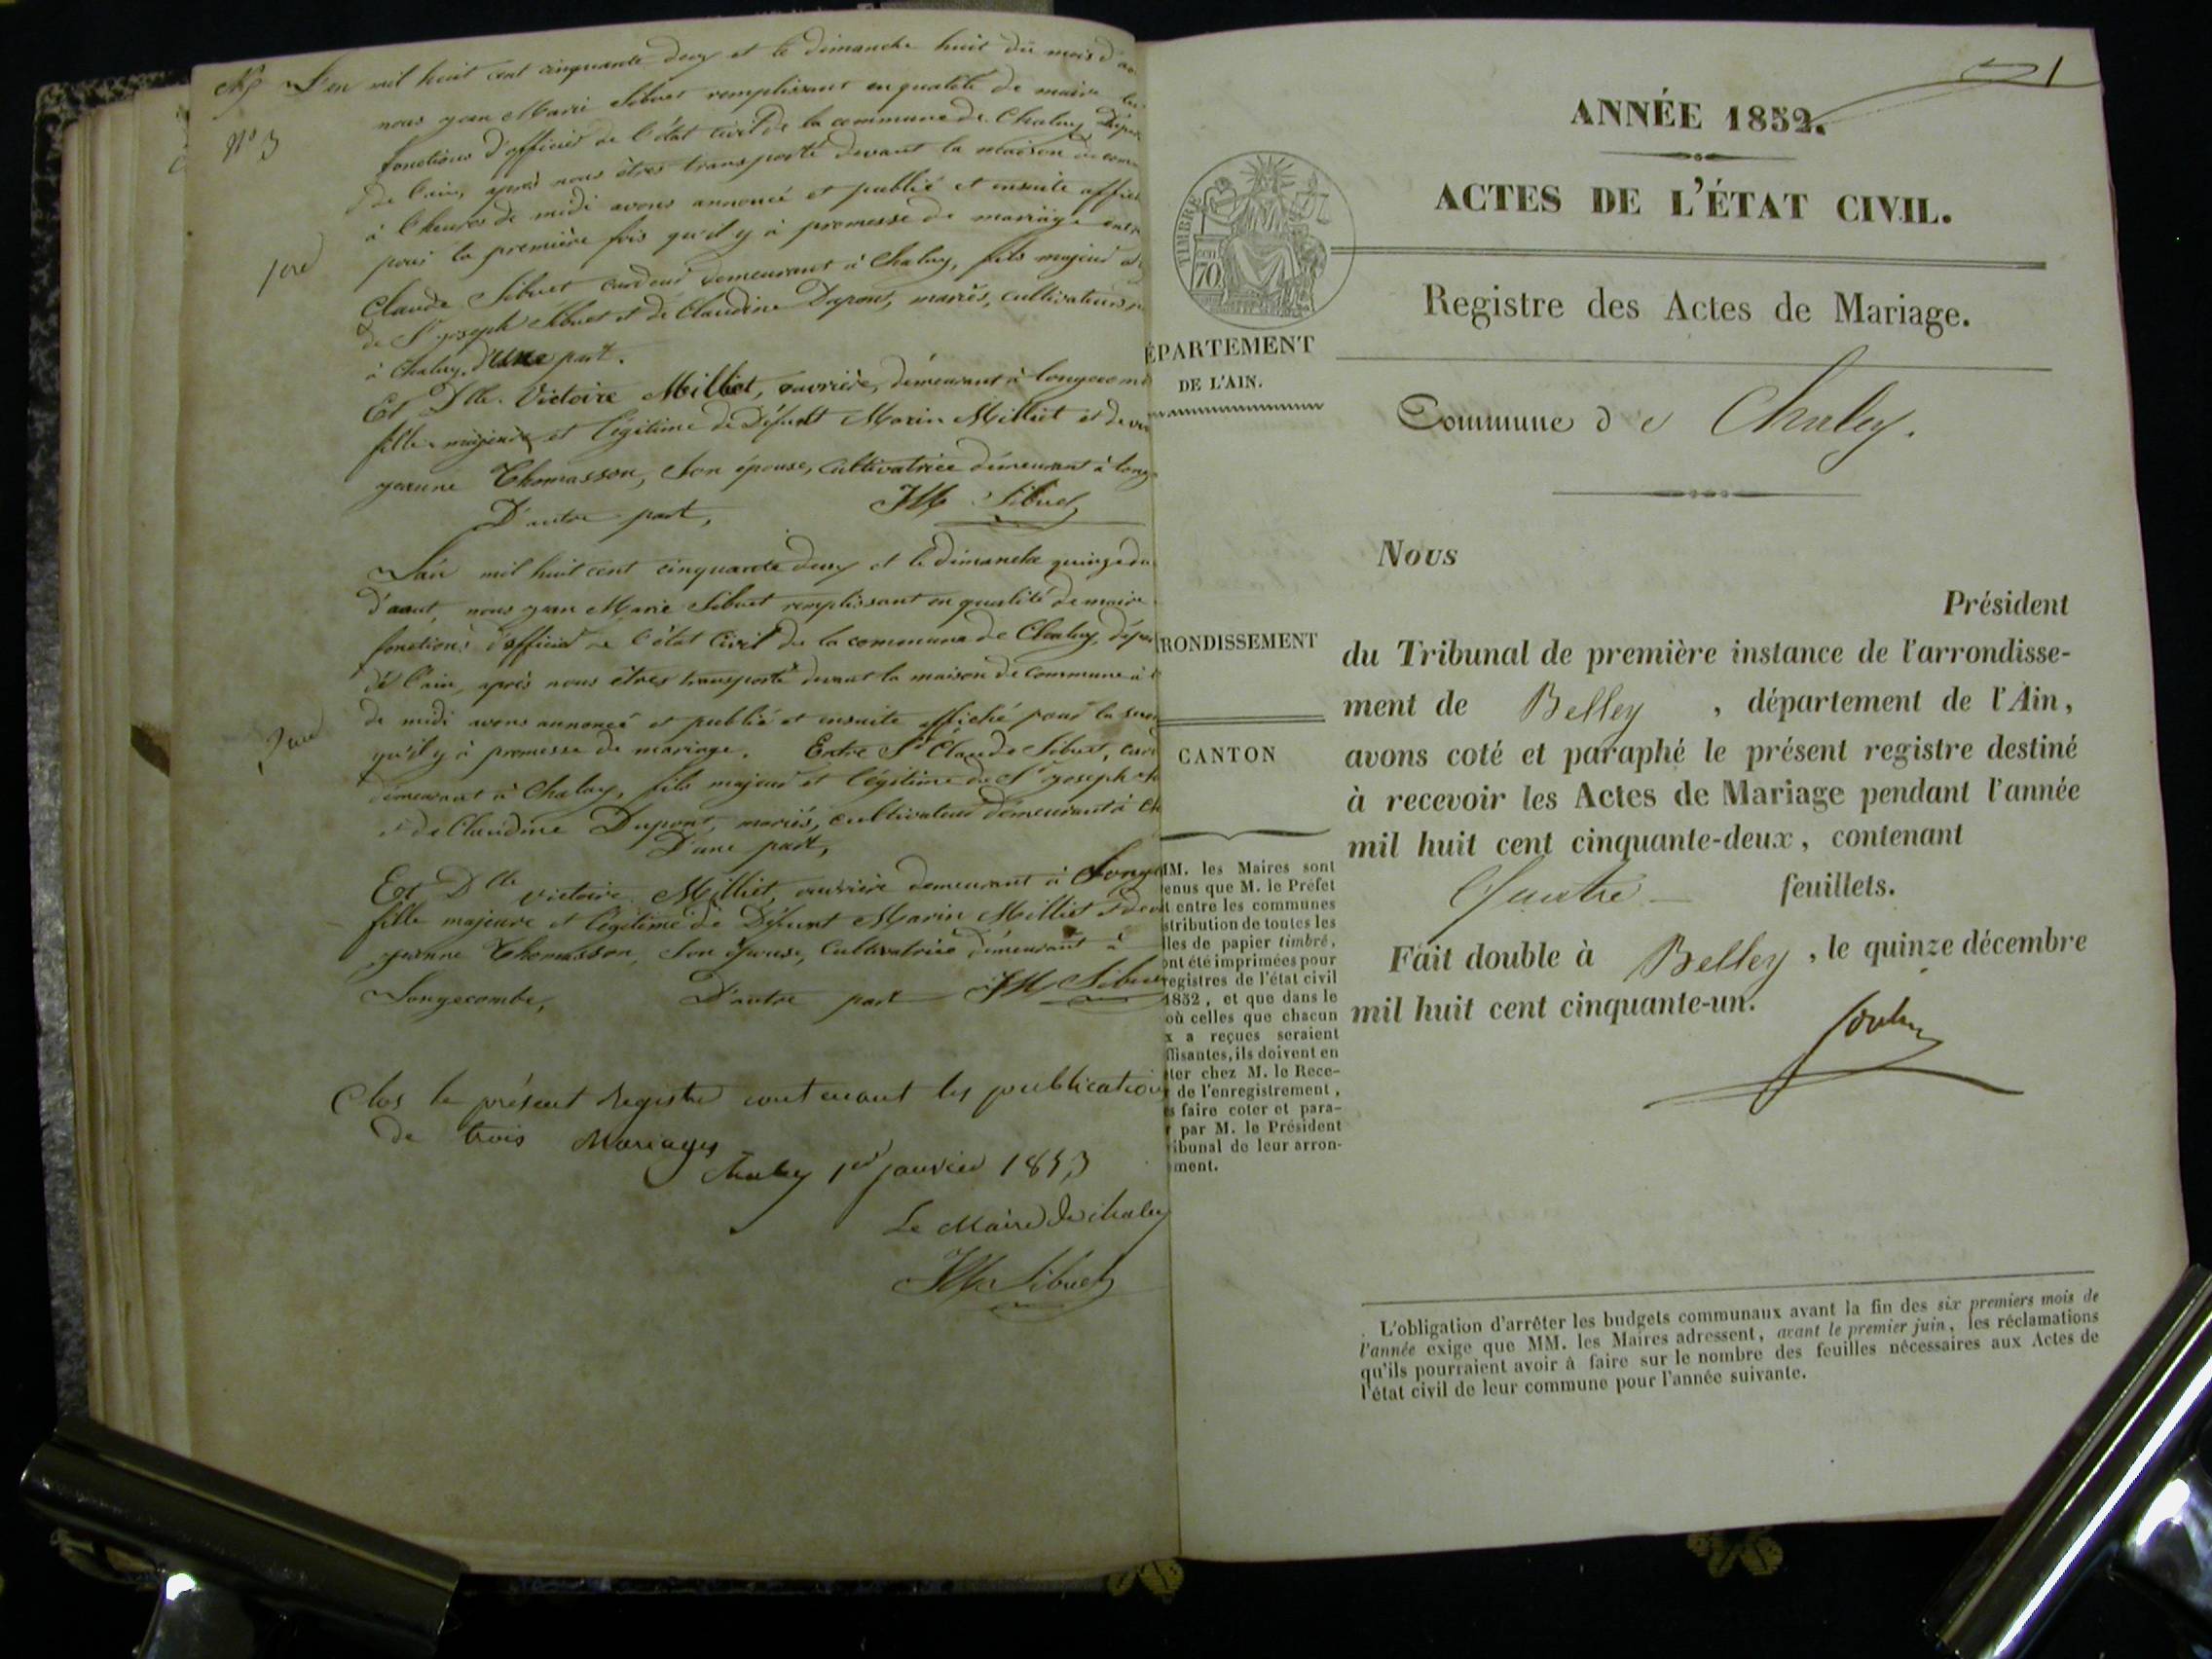 L'an mil huit cent cinquante deux et le dimanche huit du mois d'ao
N° 3
nous jean Marie Sibuet remplissant en qualité de maire les
fonctions d'officier de l'état civil de la commune de Chaley, Dépar
de l'ain, après nous êtres transporté devant la maison de com
à l'heures de midi avons annoncé et publié et ensuite affich
1ere
pour la première fois qu'il y à promesse de mariage entr
Claude Sibuet cardeur demeurant à Chaley, fils majeur et
de Sr joseph Sibuet et de Claudine Dupont, mariés, cultivateurs
à Chaley, d'une part.
Et Dlle. Victoire Milliet, ouvrière, démeurant à longecombe
fille majeure et légitime de Défunt Marin Milliet et de
jeanne Thomasson, Son épouse, Cultivatrice démeurant à longe
D'autre part, JM Sibuet
L'an mil huit cent cinquante deux et le dimanche quinze du
d'aout, nous jean Marie Sibuet remplissant en qualité de maire
fonctions d'officier de l'état Civil de la commune de Chaley, dépar
de l'ain, après nous êtres transporté devant la maison de Commune à l
de midi avons annoncé et publié et ensuite affiché pour la
qu'il y à promesse de mariage. Entre Sr Claude Sibuet, car
démeurant à Chaley, fils majeur et légitime de Sr joseph
et de Claudine Dupont, mariés, cultivateur démeurant à Ch
D'une part,
Et Dlle victoire Milliet, ouvrière demeurant à Longe
fille majeure et légitime de Défunt Marin Milliet et de
jeanne Thomasson, Son épouse, Cultivatrice démeurant à
Longecombe, D'autre part JM Sibuet
Clos le présent Registre contenant les publications
de trois Mariages
Chaley 1er janvier 1853
Le Maire de chaley
JM Sibuet
1
ANNÉE 1852.
ACTES DE L'ÉTAT CIVIL.
TIMBRE
70
Registre des Actes de Mariage.
ÉPARTEMENT
DE L'AIN.
Commune de Chaley.
Nous
Président
du Tribunal de première instance de l'arrondisse-
ment de Belley , département de l'Ain,
avons coté et paraphé le présent registre destiné
à recevoir les Actes de Mariage pendant l'année
mil huit cent cinquante-deux, contenant
Quatre feuillets.
Fait double à Belley , le quinze décembre
mil huit cent cinquante-un.
RONDISSEMENT
CANTON
MM. les Maires sont
enus que M. le Préfet
t entre les communes
stribution de toutes les
lles de papier timbré,
ont été imprimées pour
registres de l'état civil
1852, et que dans le
où celles que chacun
x a reçues seraient
ffisantes, ils doivent en
ter chez M. le Rece-
de l'enregistrement,
s faire coter et para-
r par M. le Président
ibunal de leur arron-
ment.
L'obligation d'arrêter les budgets communaux avant la fin des six premiers mois de
l'année exige que MM. les Maires adressent, avant le premier juin, les réclamations
qu'ils pourraient avoir à faire sur le nombre des feuilles nécessaires aux Actes de
l'état civil de leur commune pour l'année suivante.